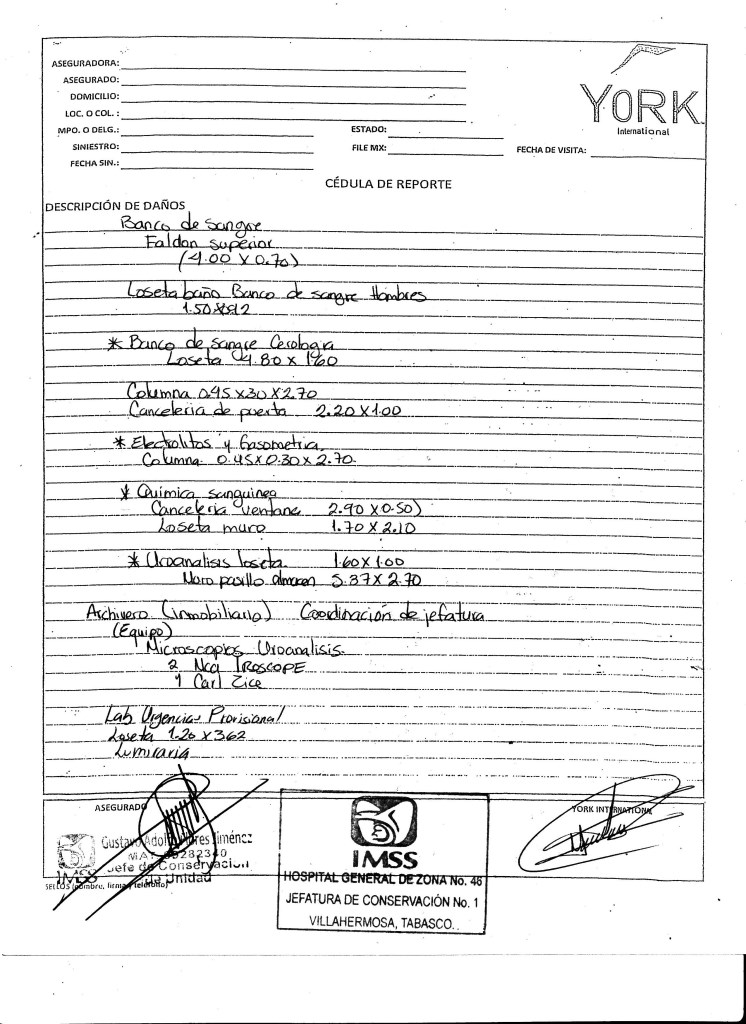 ASEGURADORA:
ASEGURADO:
DOMICILIO:
LOC. O COL. :
MPO. O DELG.: ESTADO:
SINIESTRO: FILE MX: FECHA DE VISITA:
FECHA SIN.:
YORK
International
CÉDULA DE REPORTE
DESCRIPCIÓN DE DAÑOS
Banco de sangre
Faldon superior
(4.00 X 0.70)
Loseta baño Banco de sangre Hombres
1.50
* Banco de sangre Cerologia
Loseta 4.80 x 1.60
Columna 0.45 x 30 x 2.70
Canceleria de puerta 2.20 x 1.00
* Electrolitos y Gasometria
Columna 0.45 x 0.30 x 2.70
* Quimica sanguinea
Canceleria ventana 2.90 x 0.50)
Loseta muro 1.70 x 2.10
* Uroanalisis loseta 1.60 x 1.00
Muro pasillo almacen 5.37 x 2.70
Archivero (inmobiliario) Coordinación de jefatura
(Equipo)
Microscopios Uroanalisis
2 IROSCOPE
1 Carl Zice
Lab Urgencias Provisional
Loseta 1.20 x 3.62
Lumiraria
ASEGURADO
Gustavo Adolfo Jiménez
MAT.
Jefe de Conservación
de Unidad
IMSS
SELLOS (nombre, firma y teléfono)
IMSS
HOSPITAL GENERAL DE ZONA No. 46
JEFATURA DE CONSERVACIÓN No. 1
VILLAHERMOSA, TABASCO.
YORK INTERNATIONAL